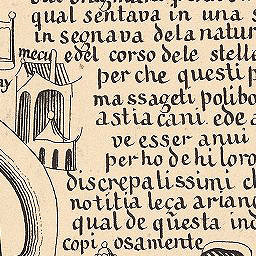 qual sentava in una s
in segnava dela natur
mecu edel corso dele stelle
per che questi p
massageti polibo
astia cani. ede a
ve esser anui
per ho de hi loro
discrepalissimi ch
notitia leca ariano
qual de q̃uesta ind
copiosamente